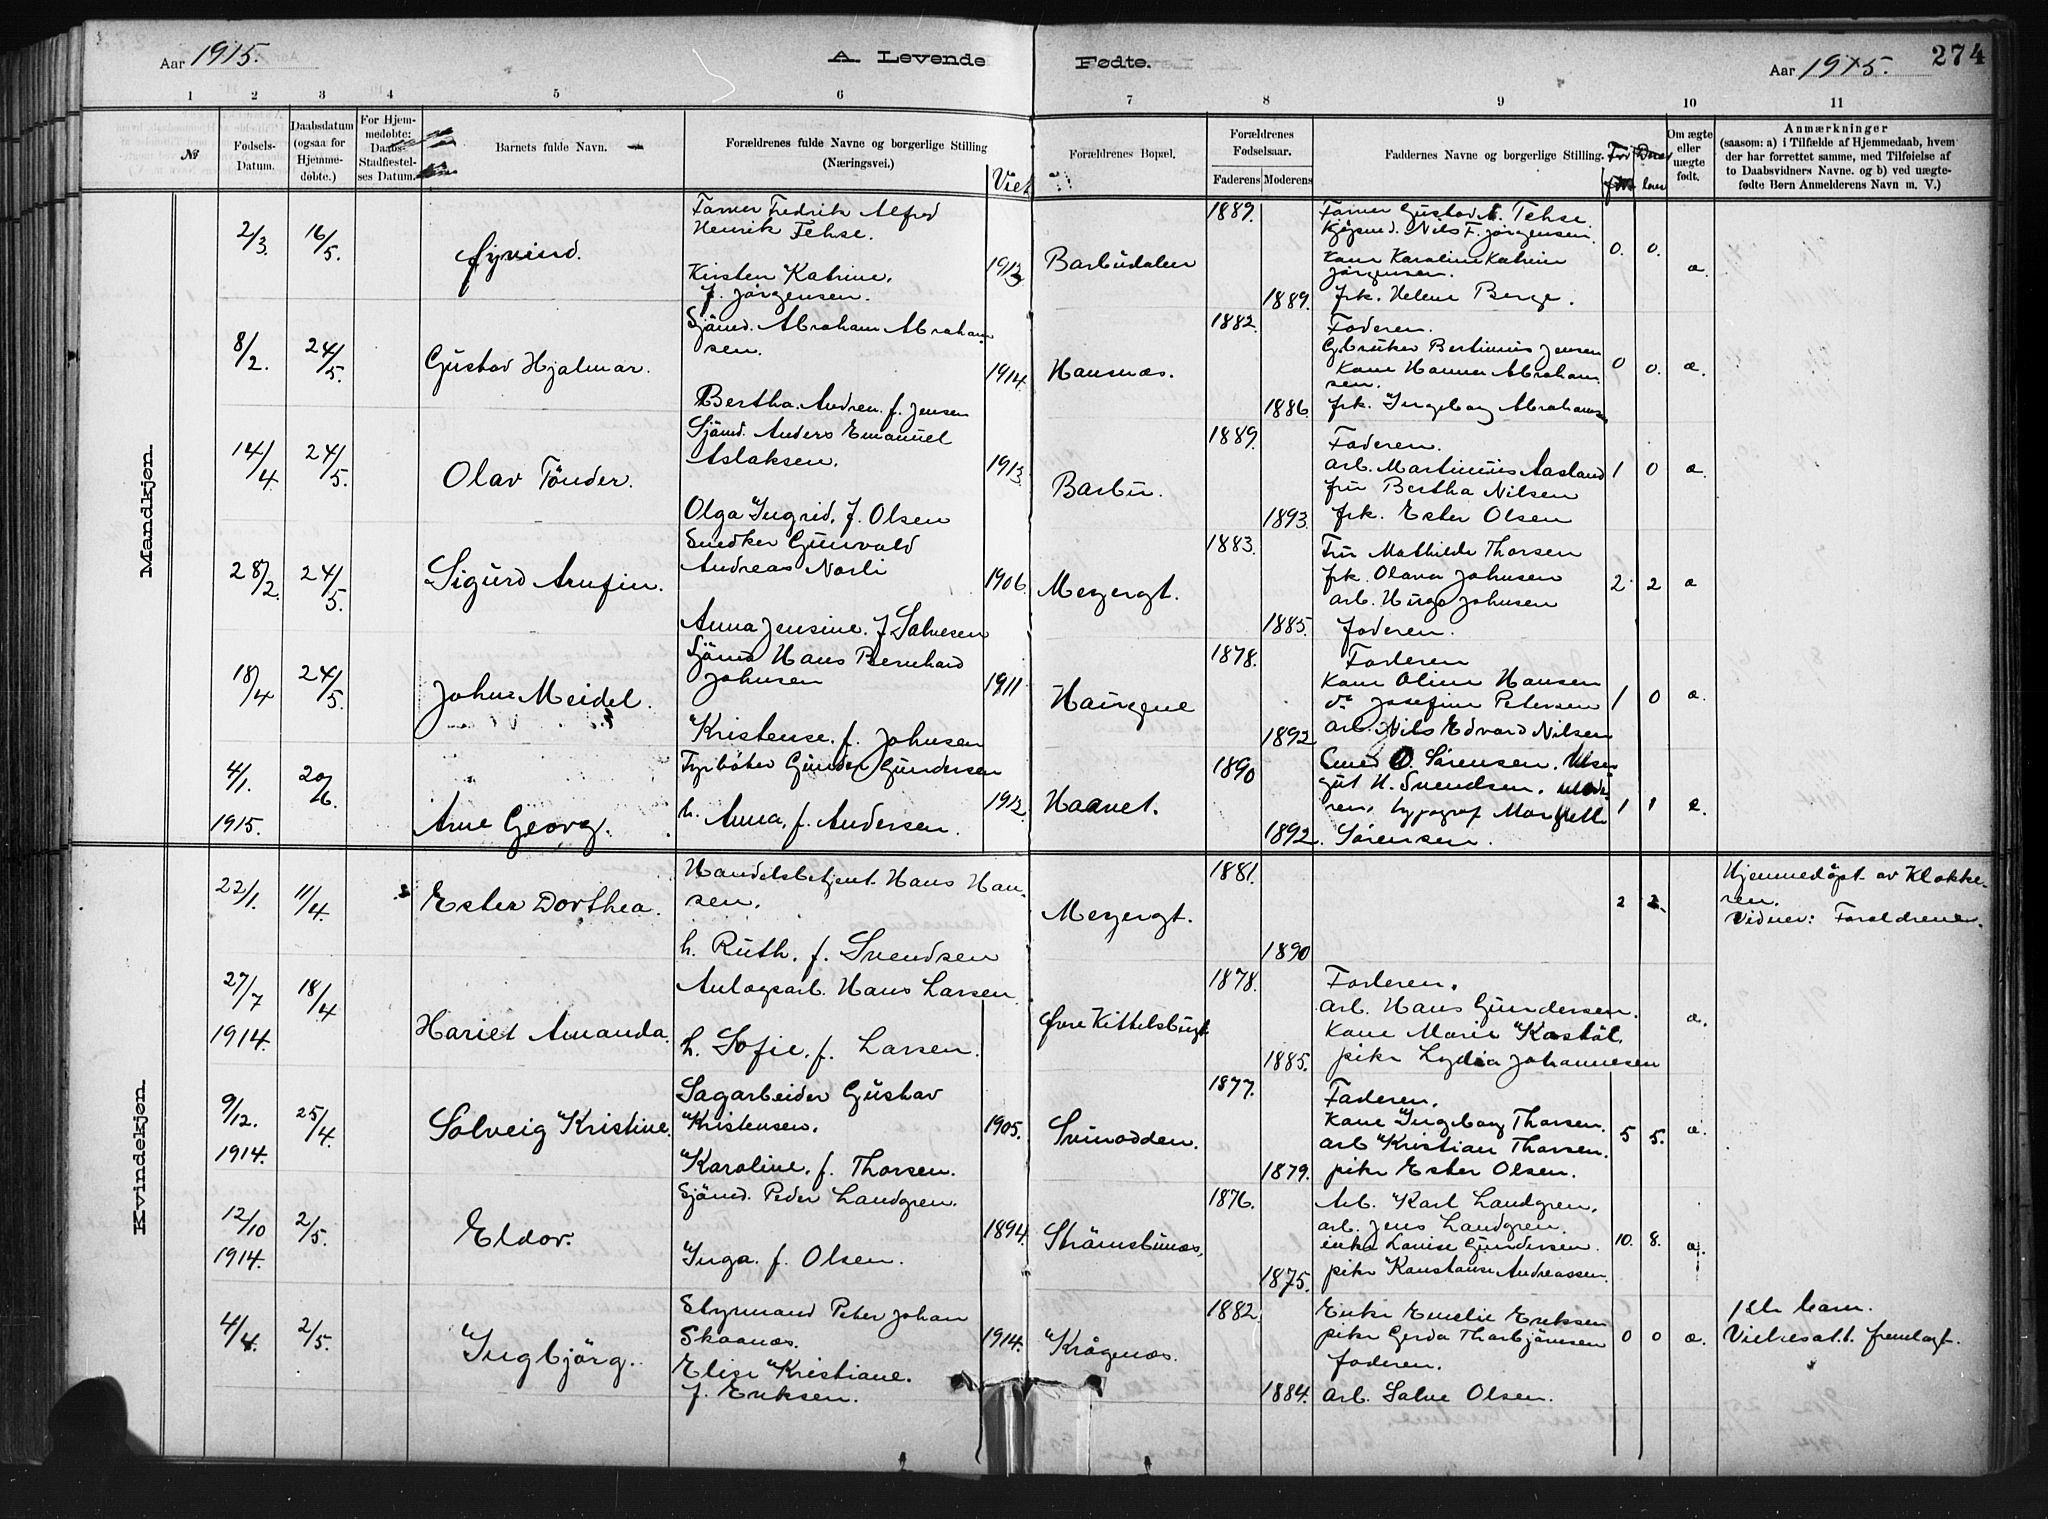 Aar 1915.
A. Levende Fødte.
Aar 1915.
274
1 2 3 4 5 6 7 8 9 10 11
No
Fødsels-Datum.
Daabsdatum (ogsaa for Hjemmedøbte.)
For Hjemmedøbte: Daabs-Stadfæstelses Datum.
Barnets fulde Navn.
Forældrenes fulde Navne og borgerlige Stilling (Næringsvei.)
Viet
Forældrenes Bopæl.
Forældrenes Fødselsaar.
Faderens Moderens
Faddernes Navne og borgerlige Stilling.
Om ægte eller uægte født.
Anmærkninger
(saasom: a) i Tilfælde af Hjemmedaab, hvem der har forrettet samme, med Tilføielse af to Daabsvidners Navne. og b) ved uægtefødte Børn Anmelderens Navn m. V.)
Mandkjøn.
2/3. 16/5. Øyvind.
Farver Fredrik Alfred
Henrik Fehse.
Kirsten Katrine,
f. Jörgensen.
1913 Barbudalen 1889. 1889.
Farver Gustav A. Fehse
Kjøpmd. Nils F. Jörgensen.
Kone Karoline Katrine
Jörgensen.
frk. Helene Berge.
0. 0. æ.
8/2. 24/5. Gustav Hjalmar.
Sjömd. Abraham Abraham-
sen.
Bertha Andrea f. Jensen
1914. Hansnæs. 1882. 1886.
Faderen.
Gbruker Bertinius Jensen
Kone Hanna Abraham-
sen.
frk. Ingeborg Abrahamsen
0 0. æ.
14/4. 24/5. Olav Tönder.
Sjömd. Anders Emanuel
Aslaksen.
Olga Ingrid, f. Olsen
1913. Barbu. 1889. 1893.
Faderen.
arb. Martinius Aasland
fru Bertha Nilsen
frk. Ester Olsen
1 0 æ.
28/2. 24/5. Sigurd Arnfin.
Snedker Gunvald
Andreas Norli
Anna Jensine f. Salvesen
1906. Meyergt. 1883. 1885.
Fru Mathilde Thorsen
frk. Olava Johnsen
arb. Hugo Johnsen
faderen.
2 2 æ
18/4 24/5. John Meidel.
Sjömd Hans Bernhard
Johnsen
Kristense. f. Johnsen
1911 Haugene 1878. 1892
Faderen
Kone Oline Hansen
do Josefine Petersen
arb. Nils Edvard Nilsen
1 0 æ.
4/1. 1915. 20/6. Arne Georg.
Fyrbøter Gunder Gundersen
h. Anna, f. Andersen.
1912. Haavet. 1890 1892.
O. Sørensen.
gut H. Svendsen.
ren, typograf
Sørensen.
1 1 æ.
Kvindekjøn.
22/1. 11/4. Ester Dorthea.
Handelsbetjent Hans Han-
sen.
h. Ruth, f. Svendsen
Meyergt. 1881. 1890
2 2.
Hjemmedöpt av Klokke-
ren.
Vidner: Foreldrene.
27/7 1914. 18/4 Hariet Amanda.
Anlægsarb. Hans Larsen
h. Sofie, f. Larsen.
Øvre Kittelsbugt 1878. 1885.
Faderen.
arb. Hans Gundersen.
Kone Marie Kastöl.
pike Lydia Johannesen
æ.
9/12. 1914. 25/4. Solveig Kristine.
Sagarbeider Gustav
Kristensen.
Karoline, f. Thorsen.
1905. Svinodden. 1877. 1879.
Faderen.
Kone Ingeborg Thorsen.
arb Kristian Thorsen.
pike Ester Olsen.
5 5. æ.
12/10 1914. 2/5. Eldor.
Sjömd. Peder Landgren.
Inga. f. Olsen.
1894. Strömsbunæs. 1876. 1875.
Arb. Karl Landgren.
arb. Jens Landgren.
enke Lovise Gundersen.
pike Konstanse Andreassen.
10. 8. æ.
4/4. 2/5. Ingbjörg.
Styrmand Peter Johan
Skaanæs.
Elise Kristiane.
f. Eriksen.
1914. Krågenæs. 1882. 1884.
Enke Emelie Eriksen
pike Gerda Thorbjörnsen
faderen.
arb. Salve Olsen.
0 0 æ.
1ste barn.
Vielsesatt. fremlagt.